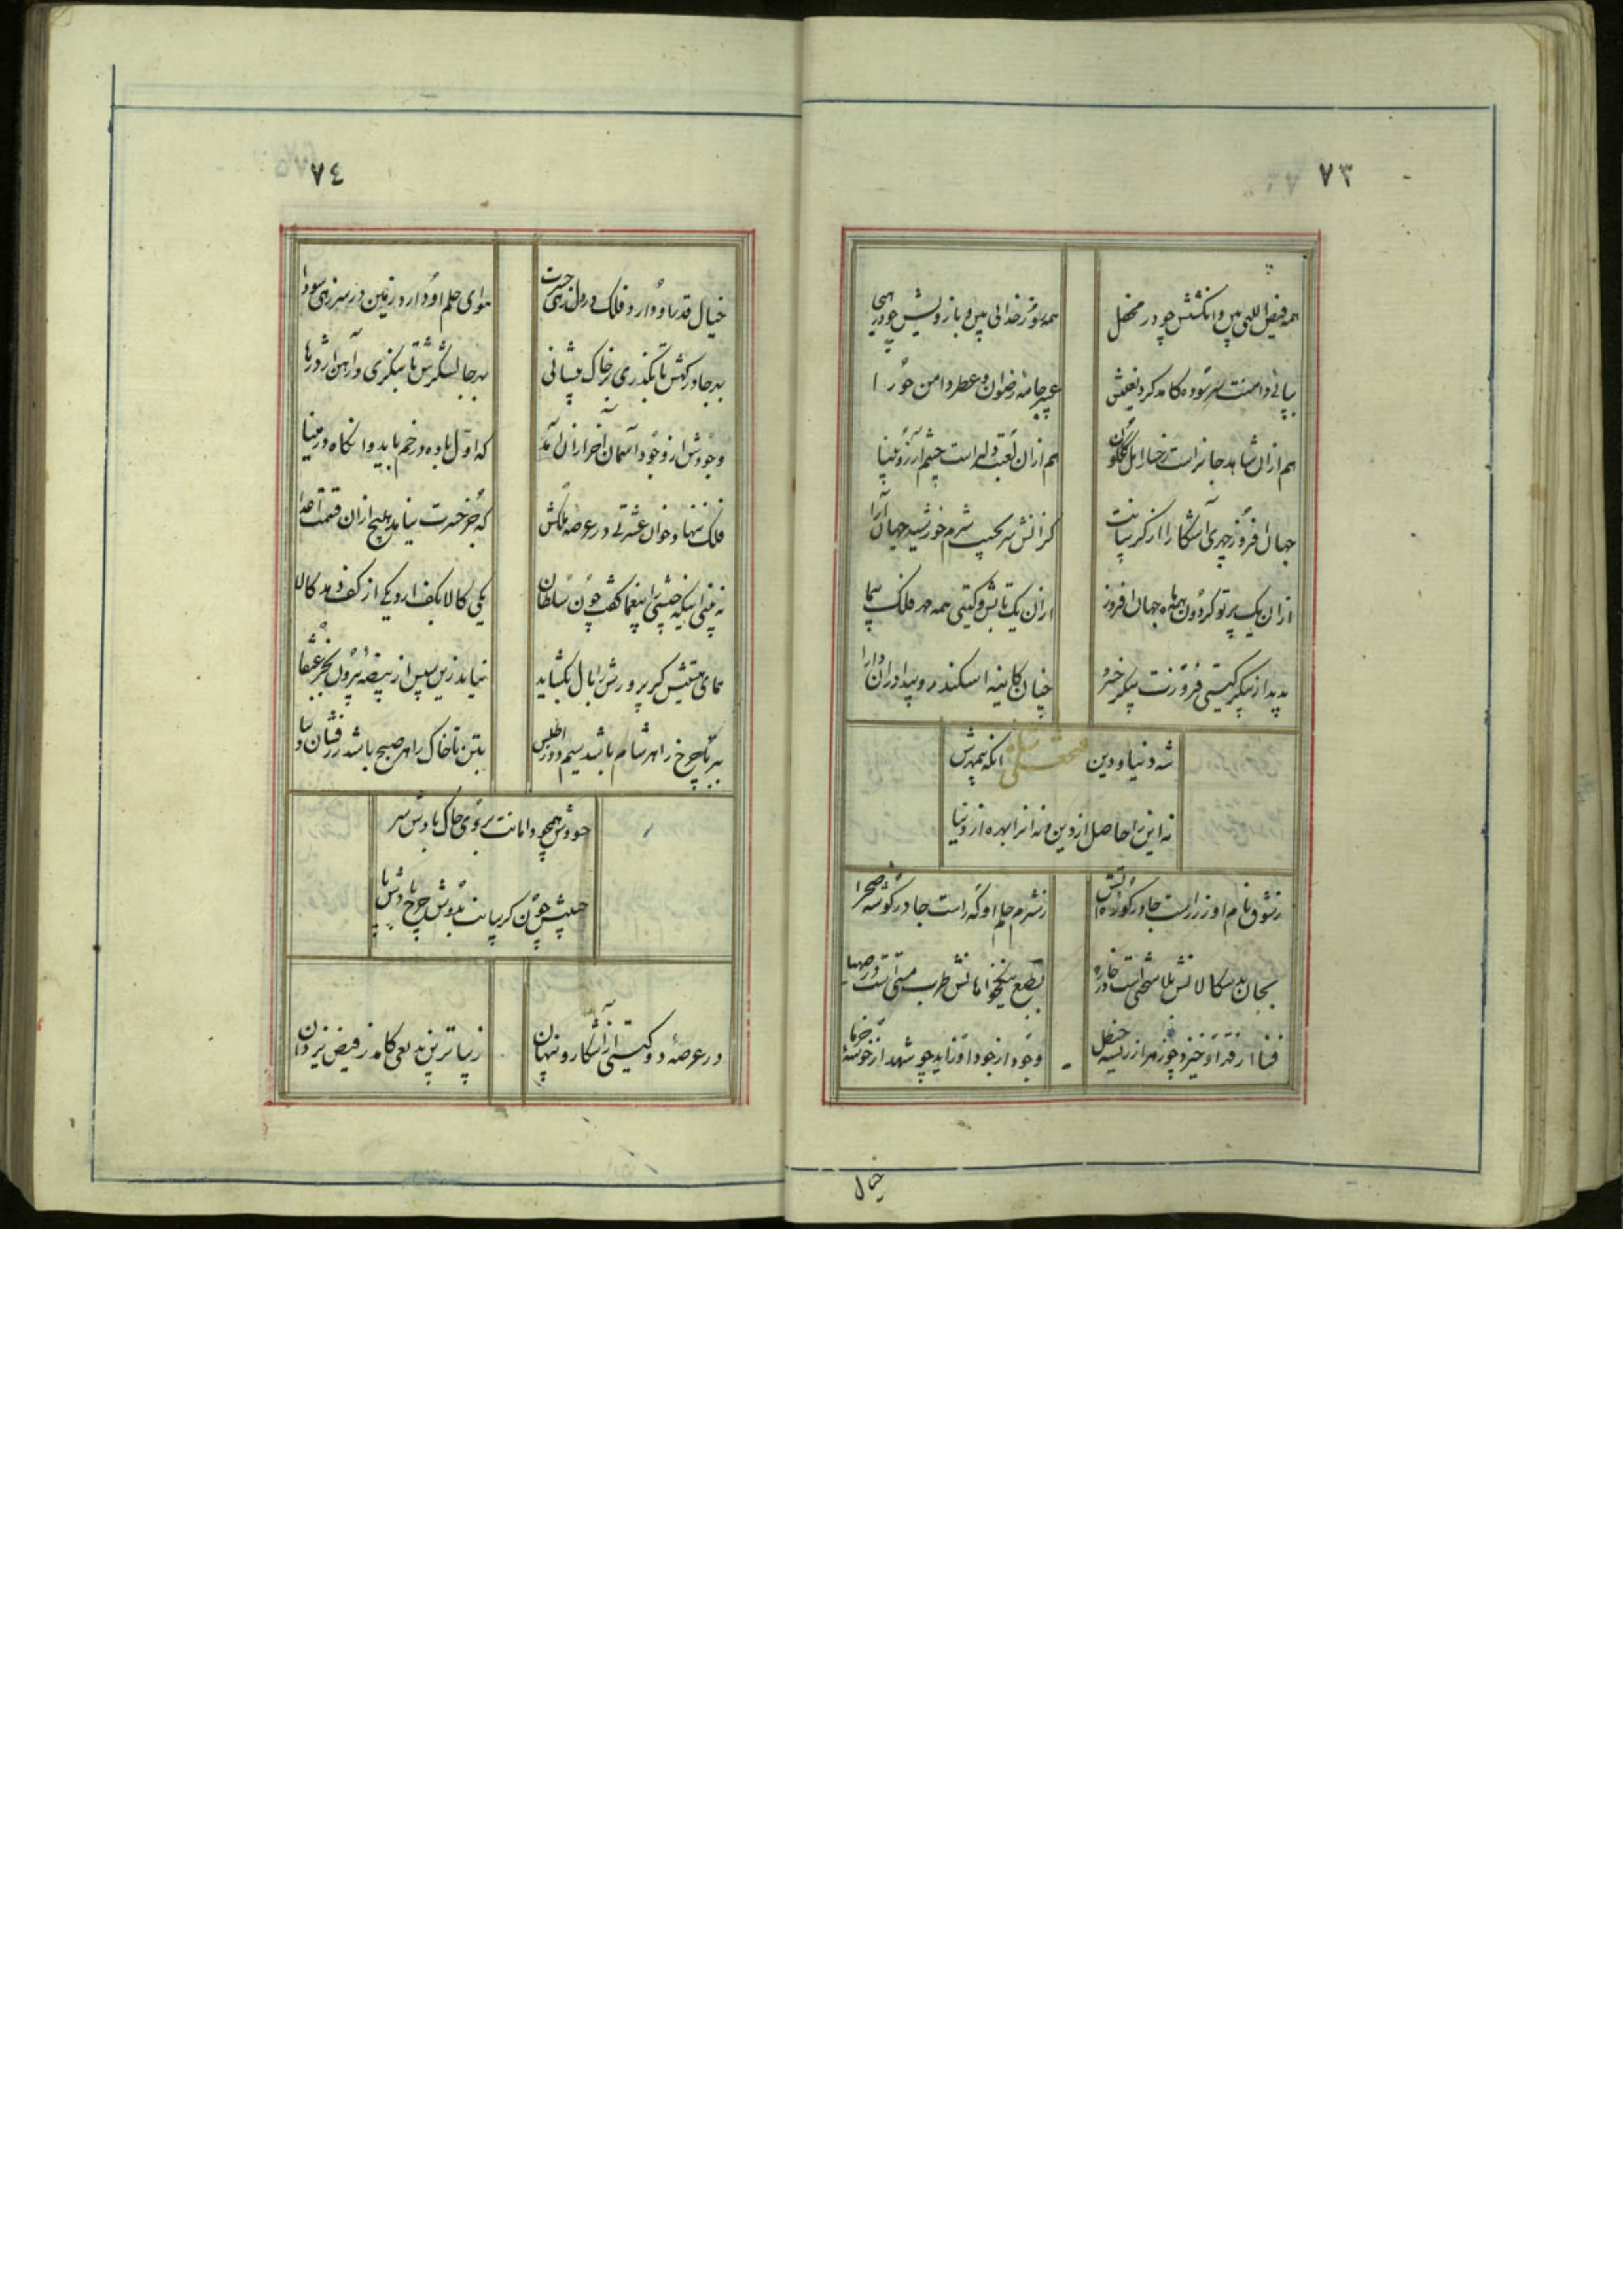 ٧٣
همه فیض اللهی بین و انگشتش چو در محفل
همه فر خدائی بین و بازویش چو در هیجا
بپائی دامنت سر سوده کامد گرد نعلینش
عبیر جامه رضوان و عطر دامن حورا
هم ازان شاهد جانراست رخسار امل گلگون
هم ازان لعبت دلراست چشم آرزو بینا
جهان افروز چهری آشکارا از گریبانت
کزانش سر بجیب شرم خورشید جهان آرا
ازان یک پرتو گردون همه ماه جهان افروز
ازان یک تابش و گیتی همه مهر فلک سیما
پدید از پیکر گیتی فروزت پیکر خسرو
چنان کائینه اسکندر و پیدا دران دارا
شه دنیا و دین فتحعلی شاه آنکه بیمهرش
نه این را حاصل از دین و نه آنرا بهره از دنیا
ز شوق نام او زر راست جا در کوره آتش
ز شرم حلم او که راست جا در گوشه صحرا
بجان بدسگالانش بلا سختی است در خاره
بطبع نیکخواهانش طرب مستی است در صهبا
فنا از قهر او خیزد چو زهر از ریشه حنظل
وجود از جود او زاید چو شهد از خوشه خرما
خیال
٧٤
خیال قدر او دارد فلک در دل زهی حیرت
هوای حلم او دارد زمین در سر زهی سودا
بهر جا درگهش تا بگذری بر خاک پیشانی
بهر جا لشگرش تا بنگری در آهن اژدرها
وجودش از وجود آسمان آخر ازان آمد
که اول باده در خم باید و آنگاه در مینا
فلک ننهاد خوان عشرتی در عرصه ملکش
که جز حسرت نیامد هیچ ازان قسمت اعدا
نه بینی اینکه جیشی را بیغما گفت چون سلطان
یکی کالا بکف آرد یکی از کف دهد کالا
همای همتش گر پرورش را بال بگشاید
نیاید زین سپس از بیضه بیرون بجز عنقا
ببر تا چرخ را هر شام باشد سیم دوز اطلس
بتن تا خاک را هر صبح باشد زرفشان دیبا
حسودش همچو دامانت بروی خاک بادش سر
حبیبش چون گریبانت بدوش چرخ بادش پا
در عرصه دو گیتی از آشکار و پنهان
زیباترین بدیعی کامد ز فیض یزدان